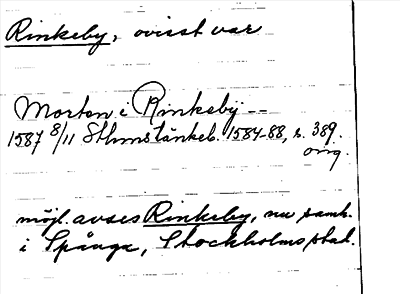 Rinkeby, ovisst var
Morten i Rinkeby --
1587 8/11 Sthmstänkeb. 1584-88, s. 389.
orig.
möjl. avses Rinkeby, nu samh.
i Spånga, Stockholms stad.